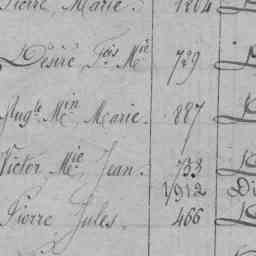 Pierre, Marie. 1204
Désiré, Fois Mie 729
Augte Min Marie. 887
Victor Mie Jean. 733
1912 Di
Pierre Jules. 466